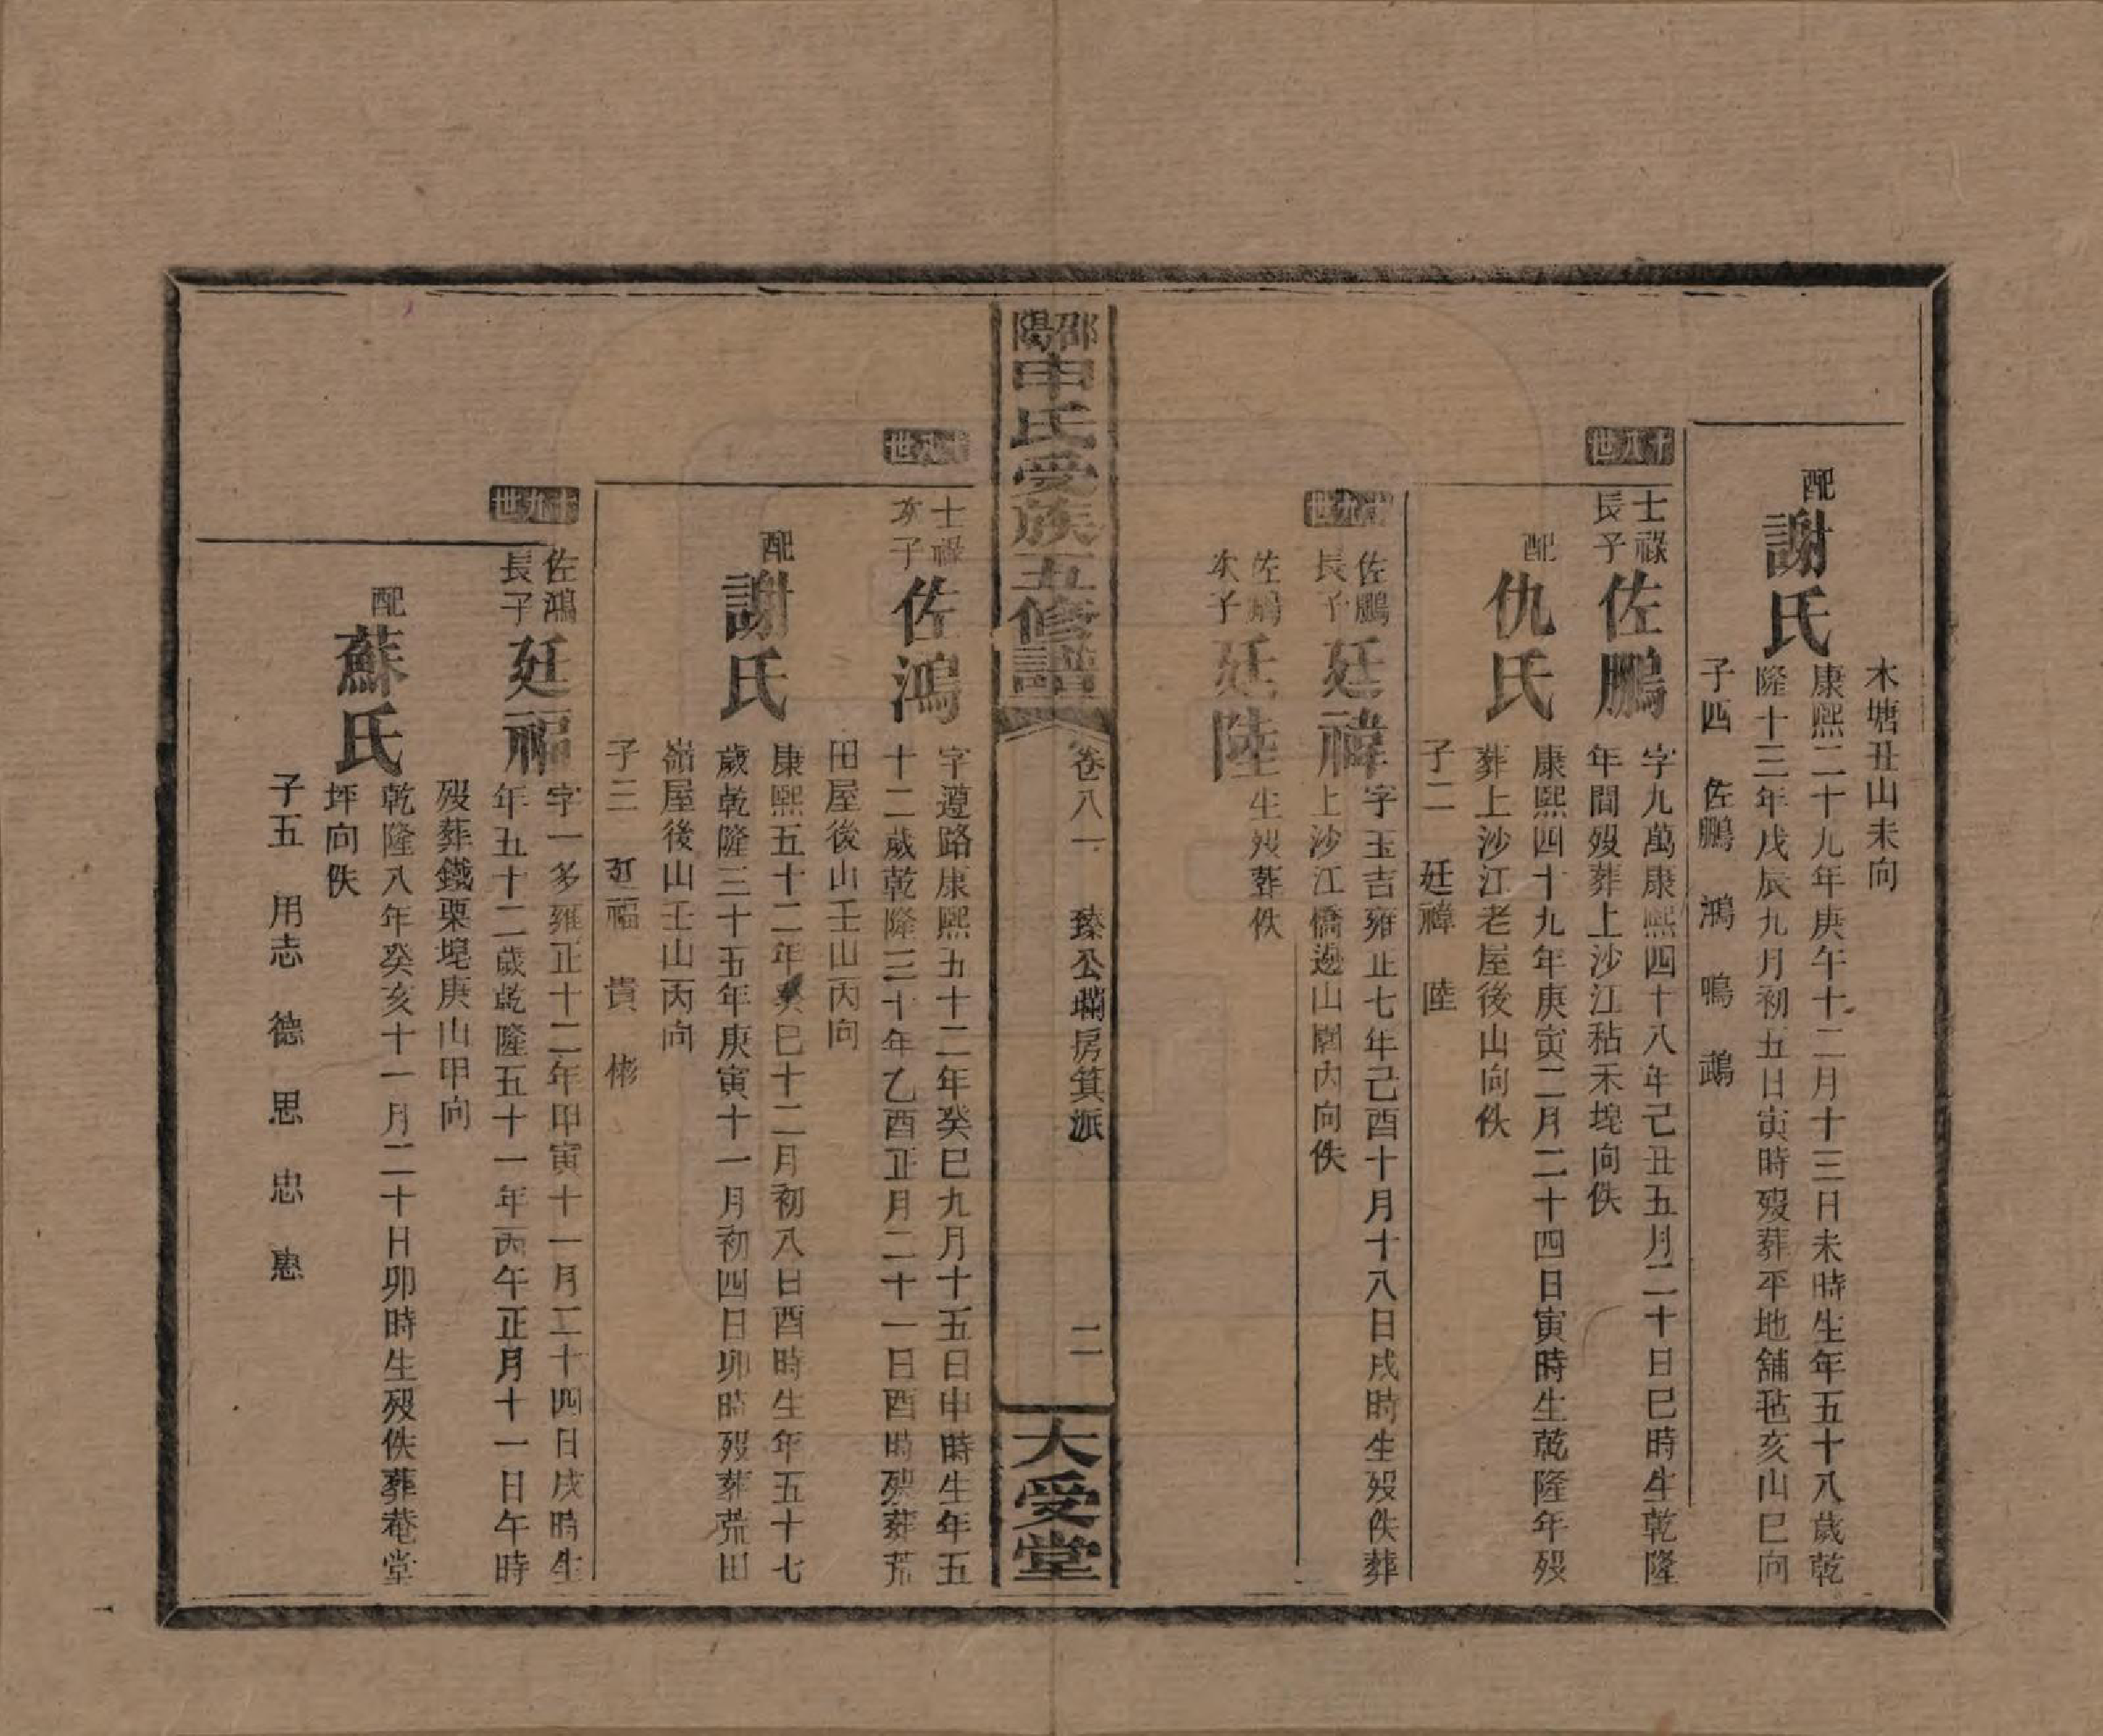 木塘丑山未向
配謝氏
康熙二十九年庚午十二月十三日未時生年五十八歲乾
隆十三年戊辰九月初五日寅時歿葬平地舖毡亥山巳向
子四 佐鵬 鴻 鳴 鵡
十八世
士祿長子佐鵬
字九萬康熙四十八年己丑五月二十日巳時生乾隆
年間歿葬上沙江秥禾塊向佚
配仇氏
康熙四十九年庚寅二月二十四日寅時生乾隆年歿
葬上沙江老屋後山向佚
子二 廷禕 陸
十九世
佐鵬長子廷禕
字玉吉雍正七年己酉十月十八日戌時生歿佚葬
上沙江橋邊山園內向佚
佐鵬次子廷陸
生歿葬佚
邵陽申氏受族五修譜
卷八一 臻公瓓房箕派 二
大受堂
十八世
士祿次子佐鴻
字遵路康熙五十二年癸巳九月十五日申時生年五
十二歲乾隆三十年乙酉正月二十一日酉時歿葬荒
田屋後山壬山丙向
配謝氏
康熙五十二年癸巳十二月初八日酉時生年五十七
歲乾隆三十五年庚寅十一月初四日卯時歿葬荒田
嶺屋後山壬山丙向
子三 廷福 貴 彬
十九世
佐鴻長子廷福
字一多雍正十二年甲寅十一月二十四日戌時生
年五十二歲乾隆五十一年丙午正月十一日午時
歿葬鐵栗塊庚山甲向
配蘇氏
乾隆八年癸亥十一月二十日卯時生歿佚葬菴堂
坪向佚
子五 用志 德 思 忠 惠